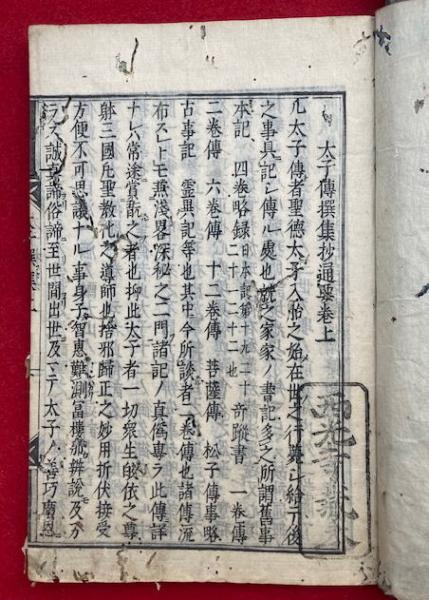 太子傳撰集抄通要卷上
凡太子傳者聖德太子入胎之始在世之行薨シ給フ後
之事具ニ記シ傳ル處也就之家家ノ書記多之所謂舊事
本記 四卷略録 日本記第十九二十二十一二十二也 奇蹤書 一卷傳
二卷傳 六卷傳 十二卷傳 菩薩傳 松子傳事略
古事記 霊異記等也其中今所談者二卷傳也諸傳流
布スト上モ無淺畧深秘之二門諸記ノ真僞專ラ此傳
十六常途賞翫之者也抑此太子者一切衆生皈依之尊
躰三國凡聖教化之導師也捨邪歸正之妙用折伏接受
方便不可思議ナル事身子智惠難測冨樓那辨說及
ラス誠真諦俗諦至世間出世及テ太子ノ善巧廣恩
西光寺藏